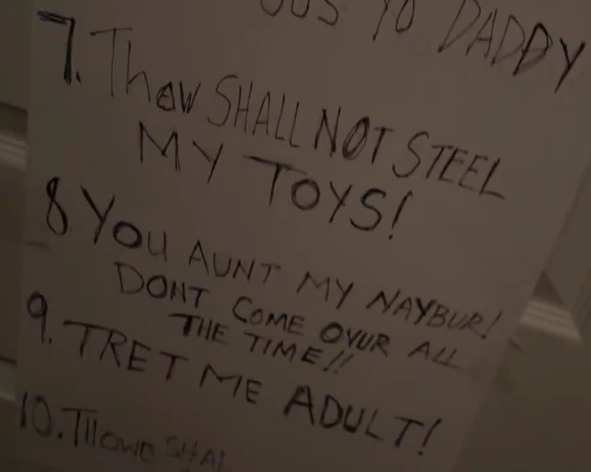 YO DADDY
7. Thow SHALL NOT STEEL
MY TOYS!
8 YOU AUNT MY NAYBUR!
DONT COME OVUR ALL
THE TIME!!
9. TRET ME ADULT!
10. Thowe SHAL